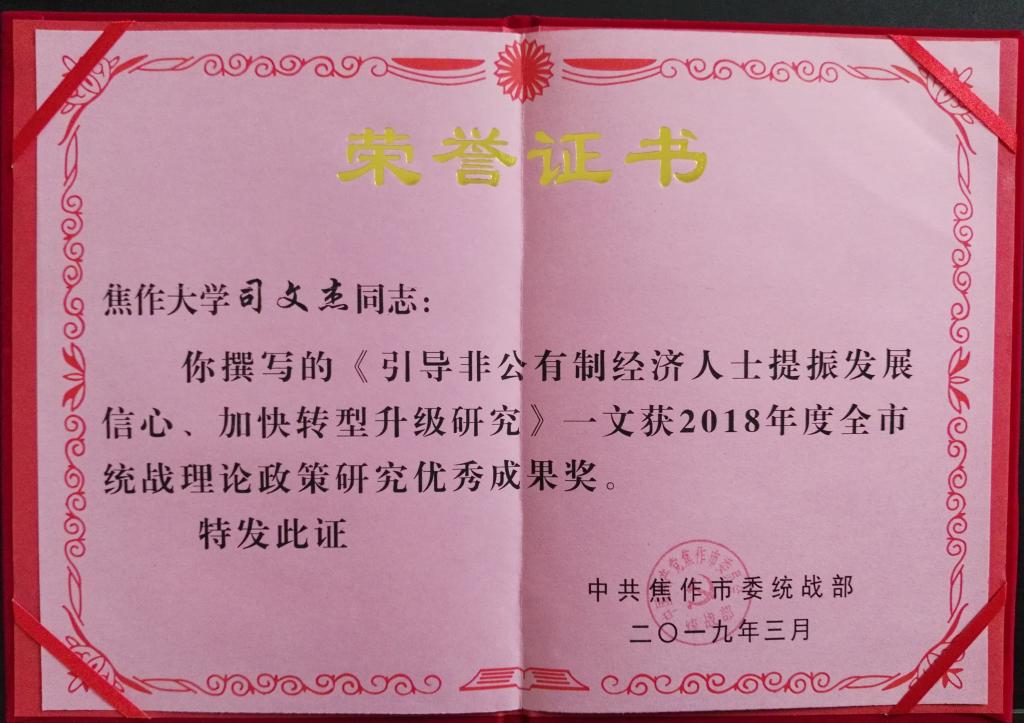 荣誉证书
焦作大学司文杰同志：
你撰写的《引导非公有制经济人士提振发展
信心、加快转型升级研究》一文获2018年度全市
统战理论政策研究优秀成果奖。
特发此证
中共焦作市委统战部
二〇一九年三月